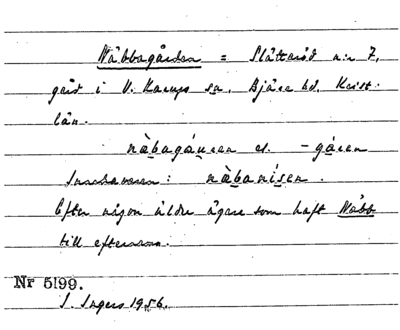 Nåbbagården = Slättaröd n:r 7,
gård i V. Karups sn, Bjäre hd, Krist.
län.
nàbagáṇen el. -gáren
Innehavaren: nàbanísen.
Efter någon äldre ägare som haft Nåbb
till efternamn.
Nr 5199.
I. Ingers 1956.